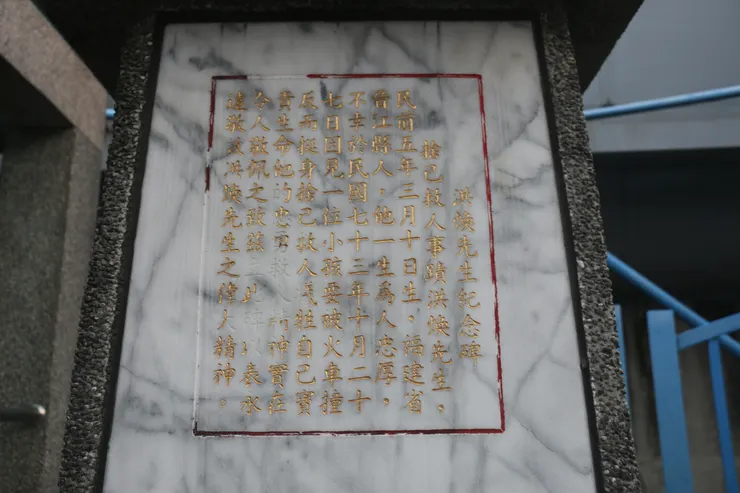 洪煥先生紀念碑
捨己救人事蹟洪煥先生，
民前五年三月十日生，福建省
晉江縣人，他一生為人忠厚，
不幸於民國七十三年十月二十
七日因見一位小孩要被火車撞
而挺身捨己救人牲自己寶
貴生命他的忠勇救人精神實在
令人敬佩之致茲立此碑以表永
遠敬洪煥先生之偉大精神。